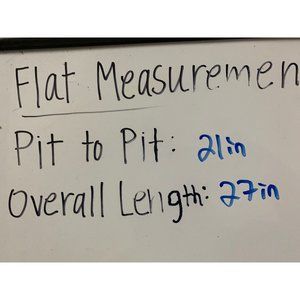 Flat Measuremen
Pit to Pit: 21in
Overall Length: 27in